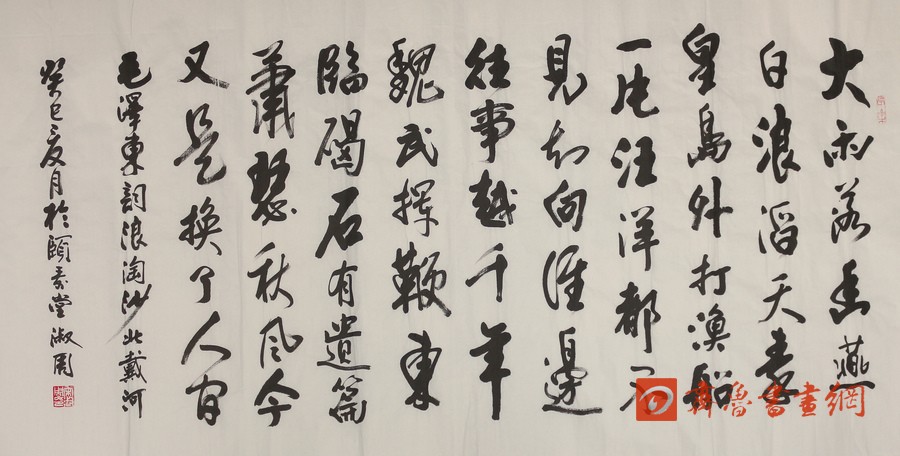 大雨落幽燕
白浪滔天秦
皇島外打漁船
一片汪洋都不
見知向誰邊
往事越千年
魏武揮鞭東
臨碣石有遺篇
蕭瑟秋風今
又是換了人間
毛澤東詞浪淘沙北戴河
癸巳夏月於頤堂淑周
齊魯書畫網